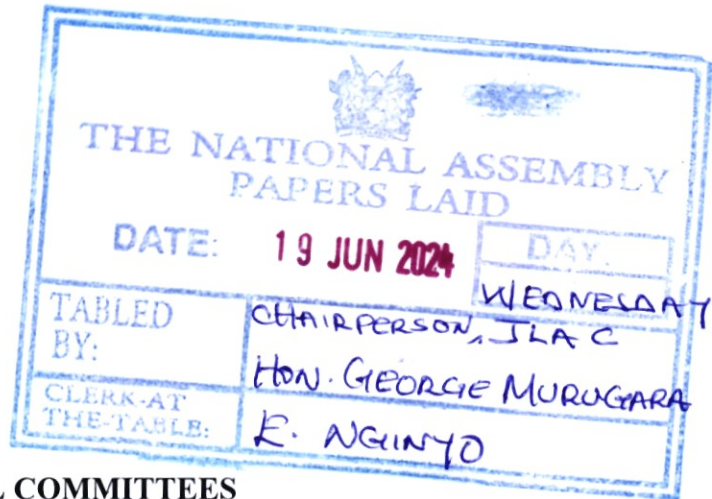 THE NATIONAL ASSEMBLY
PAPERS LAID
DATE: 19 JUN 2024 DAY.
WEDNESDAY
TABLED BY: CHAIRPERSON, JLAC
HON. GEORGE MURUGARA
CLERK-AT THE-TABLE: E. NGINYO
L COMMITTEES